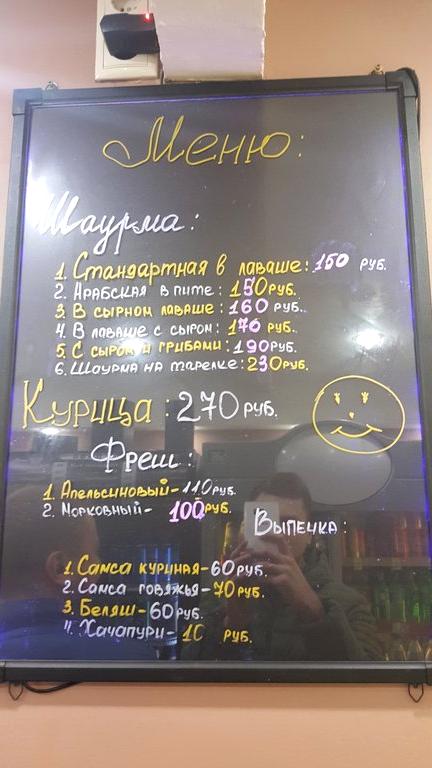 Меню:
Шаурма:
1. Стандартная в лаваше: 150 РУБ.
2. Арабская в пите: 150 РУБ.
3. В сырном лаваше: 160 РУБ.
4. В лаваше с сыром: 170 РУБ.
5. С сыром и грибами: 190 РУБ.
6. Шоурма на тарелке: 230 РУБ.
Курица: 270 РУБ.
Фреш:
1. Апельсиновый - 110 РУБ.
2. Морковный - 100 РУБ.
Выпечка:
1. Самса куриная - 60 РУБ.
2. Самса говяжья - 70 РУБ.
3. Беляш - 60 РУБ.
4. Хачапури - РУБ.